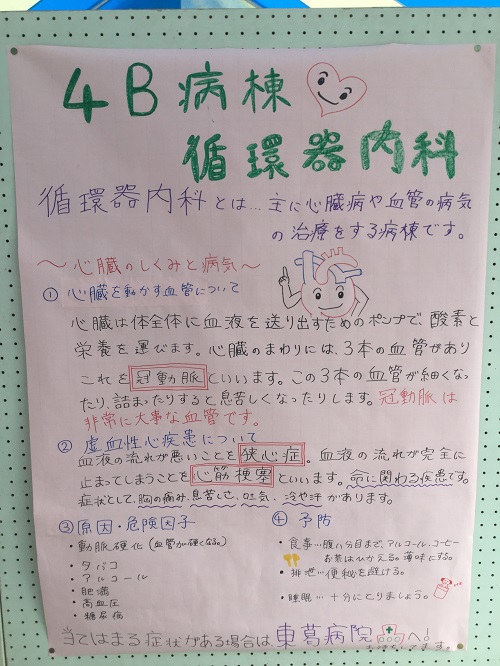 4B病棟
循環器内科
循環器内科とは…主に心臓病や血管の病気
の治療をする病棟です。
～心臓のしくみと病気～
① 心臓を動かす血管について
心臓は体全体に血液を送り出すためのポンプで、酸素と
栄養を運びます。心臓のまわりには、3本の血管があり
これを冠動脈といいます。この3本の血管が細くなっ
たり、詰まったりすると息苦しくなったりします。冠動脈は
非常に大事な血管です。
② 虚血性心疾患について
血液の流れが悪いことを狭心症。血液の流れが完全に
止まってしまうことを心筋梗塞といいます。命に関わる疾患です。
症状として、胸の痛み、息苦しさ、吐気、冷や汗があります。
③ 原因・危険因子
・動脈硬化(血管が硬くなる。)
・タバコ
・アルコール
・肥満
・高血圧
・糖尿病
④ 予防
・食事…腹八分目まで。アルコール、コーヒー
お茶はひかえる。薄味にする。
・排泄…便秘を避ける。
・睡眠…十分にとりましょう。
当てはまる症状がある場合は東葛病院へ!